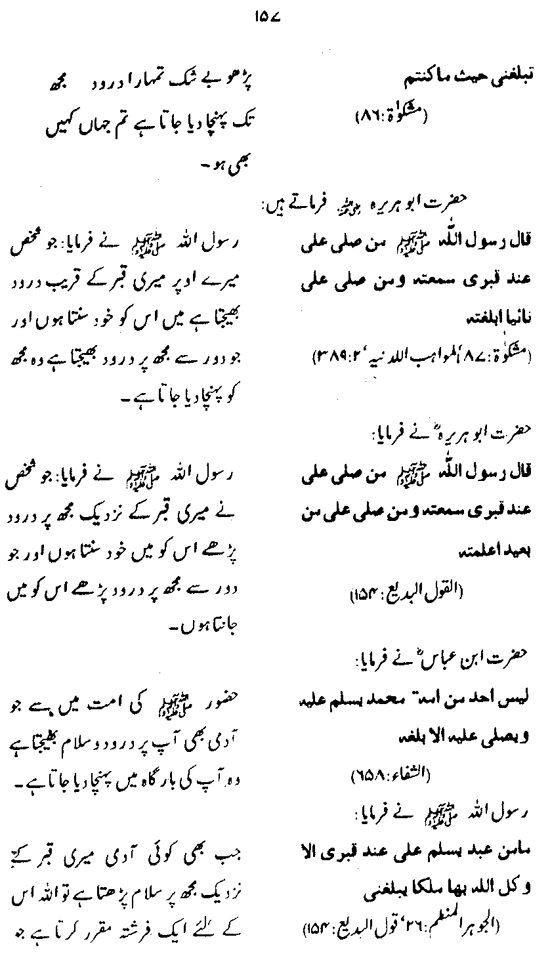 ۱۵۷
تبلغنی حیث ماکنتم
(مشکوٰۃ:۸۶)
پڑھو بے شک تمہارا درود مجھ
تک پہنچا دیا جاتا ہے تم جہاں کہیں
بھی ہو۔
حضرت ابو ہریرہ رضی اللہ عنہ فرماتے ہیں:
قال رسول اللّٰہ ﷺ من صلی علی
عند قبری سمعتہ ومن صلی علی
نائیا ابلغتہ
(مشکوٰۃ:۸۷، المواہب اللدنیہ، ۳۸۹:۲)
رسول اللہ ﷺ نے فرمایا: جو شخص
میرے اوپر میری قبر کے قریب درود
بھیجتا ہے میں اس کو خود سنتا ہوں اور
جو دور سے مجھ پر درود بھیجتا ہے وہ مجھ
کو پہنچا دیا جاتا ہے۔
حضرت ابو ہریرہؓ نے فرمایا:
قال رسول اللّٰہ ﷺ من صلی علی
عند قبری سمعتہ ومن صلی علی من
بعید اعلمتہ
(القول البدیع:۱۵۴)
رسول اللہ ﷺ نے فرمایا: جو شخص
نے میری قبر کے نزدیک مجھ پر درود
پڑھے اس کو میں خود سنتا ہوں اور جو
دور سے مجھ پر درود پڑھے اس کو میں
جانتا ہوں۔
حضرت ابن عباسؓ نے فرمایا:
لیس احد من امۃ محمد یسلم علیہ
و یصلی علیہ الا بلغہ
(الشفاء:۶۵۸)
حضور ﷺ کی امت میں سے جو
آدمی بھی آپ پر درود و سلام بھیجتا ہے
وہ آپ کی بارگاہ میں پہنچا دیا جاتا ہے۔
رسول اللہ ﷺ نے فرمایا:
مامن عبد یسلم علی عند قبری الا
و کل اللہ بھا ملکا یبلغنی
(الجوہر المنظم:۲۶، قول البدیع:۱۵۴)
جب بھی کوئی آدمی میری قبر کے
نزدیک مجھ پر سلام پڑھتا ہے تو اللہ اس
کے لئے ایک فرشتہ مقرر کرتا ہے جو